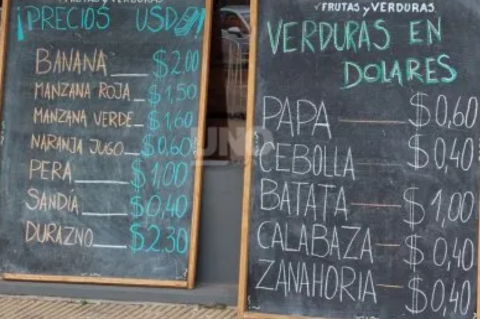 FRUTAS y VERDURAS
¡PRECIOS USD
BANANA $2.00
MANZANA ROJA $1,50
MANZANA VERDE $1,60
NARANJA JUGO $0,60
PERA $1,00
SANDÍA $0,40
DURAZNO $2.30
FRUTAS y VERDURAS
VERDURAS EN
DOLARES
PAPA $0,60
CEBOLLA $0,40
BATATA $1,00
CALABAZA $0,40
ZANAHORIA $0,40
UNO